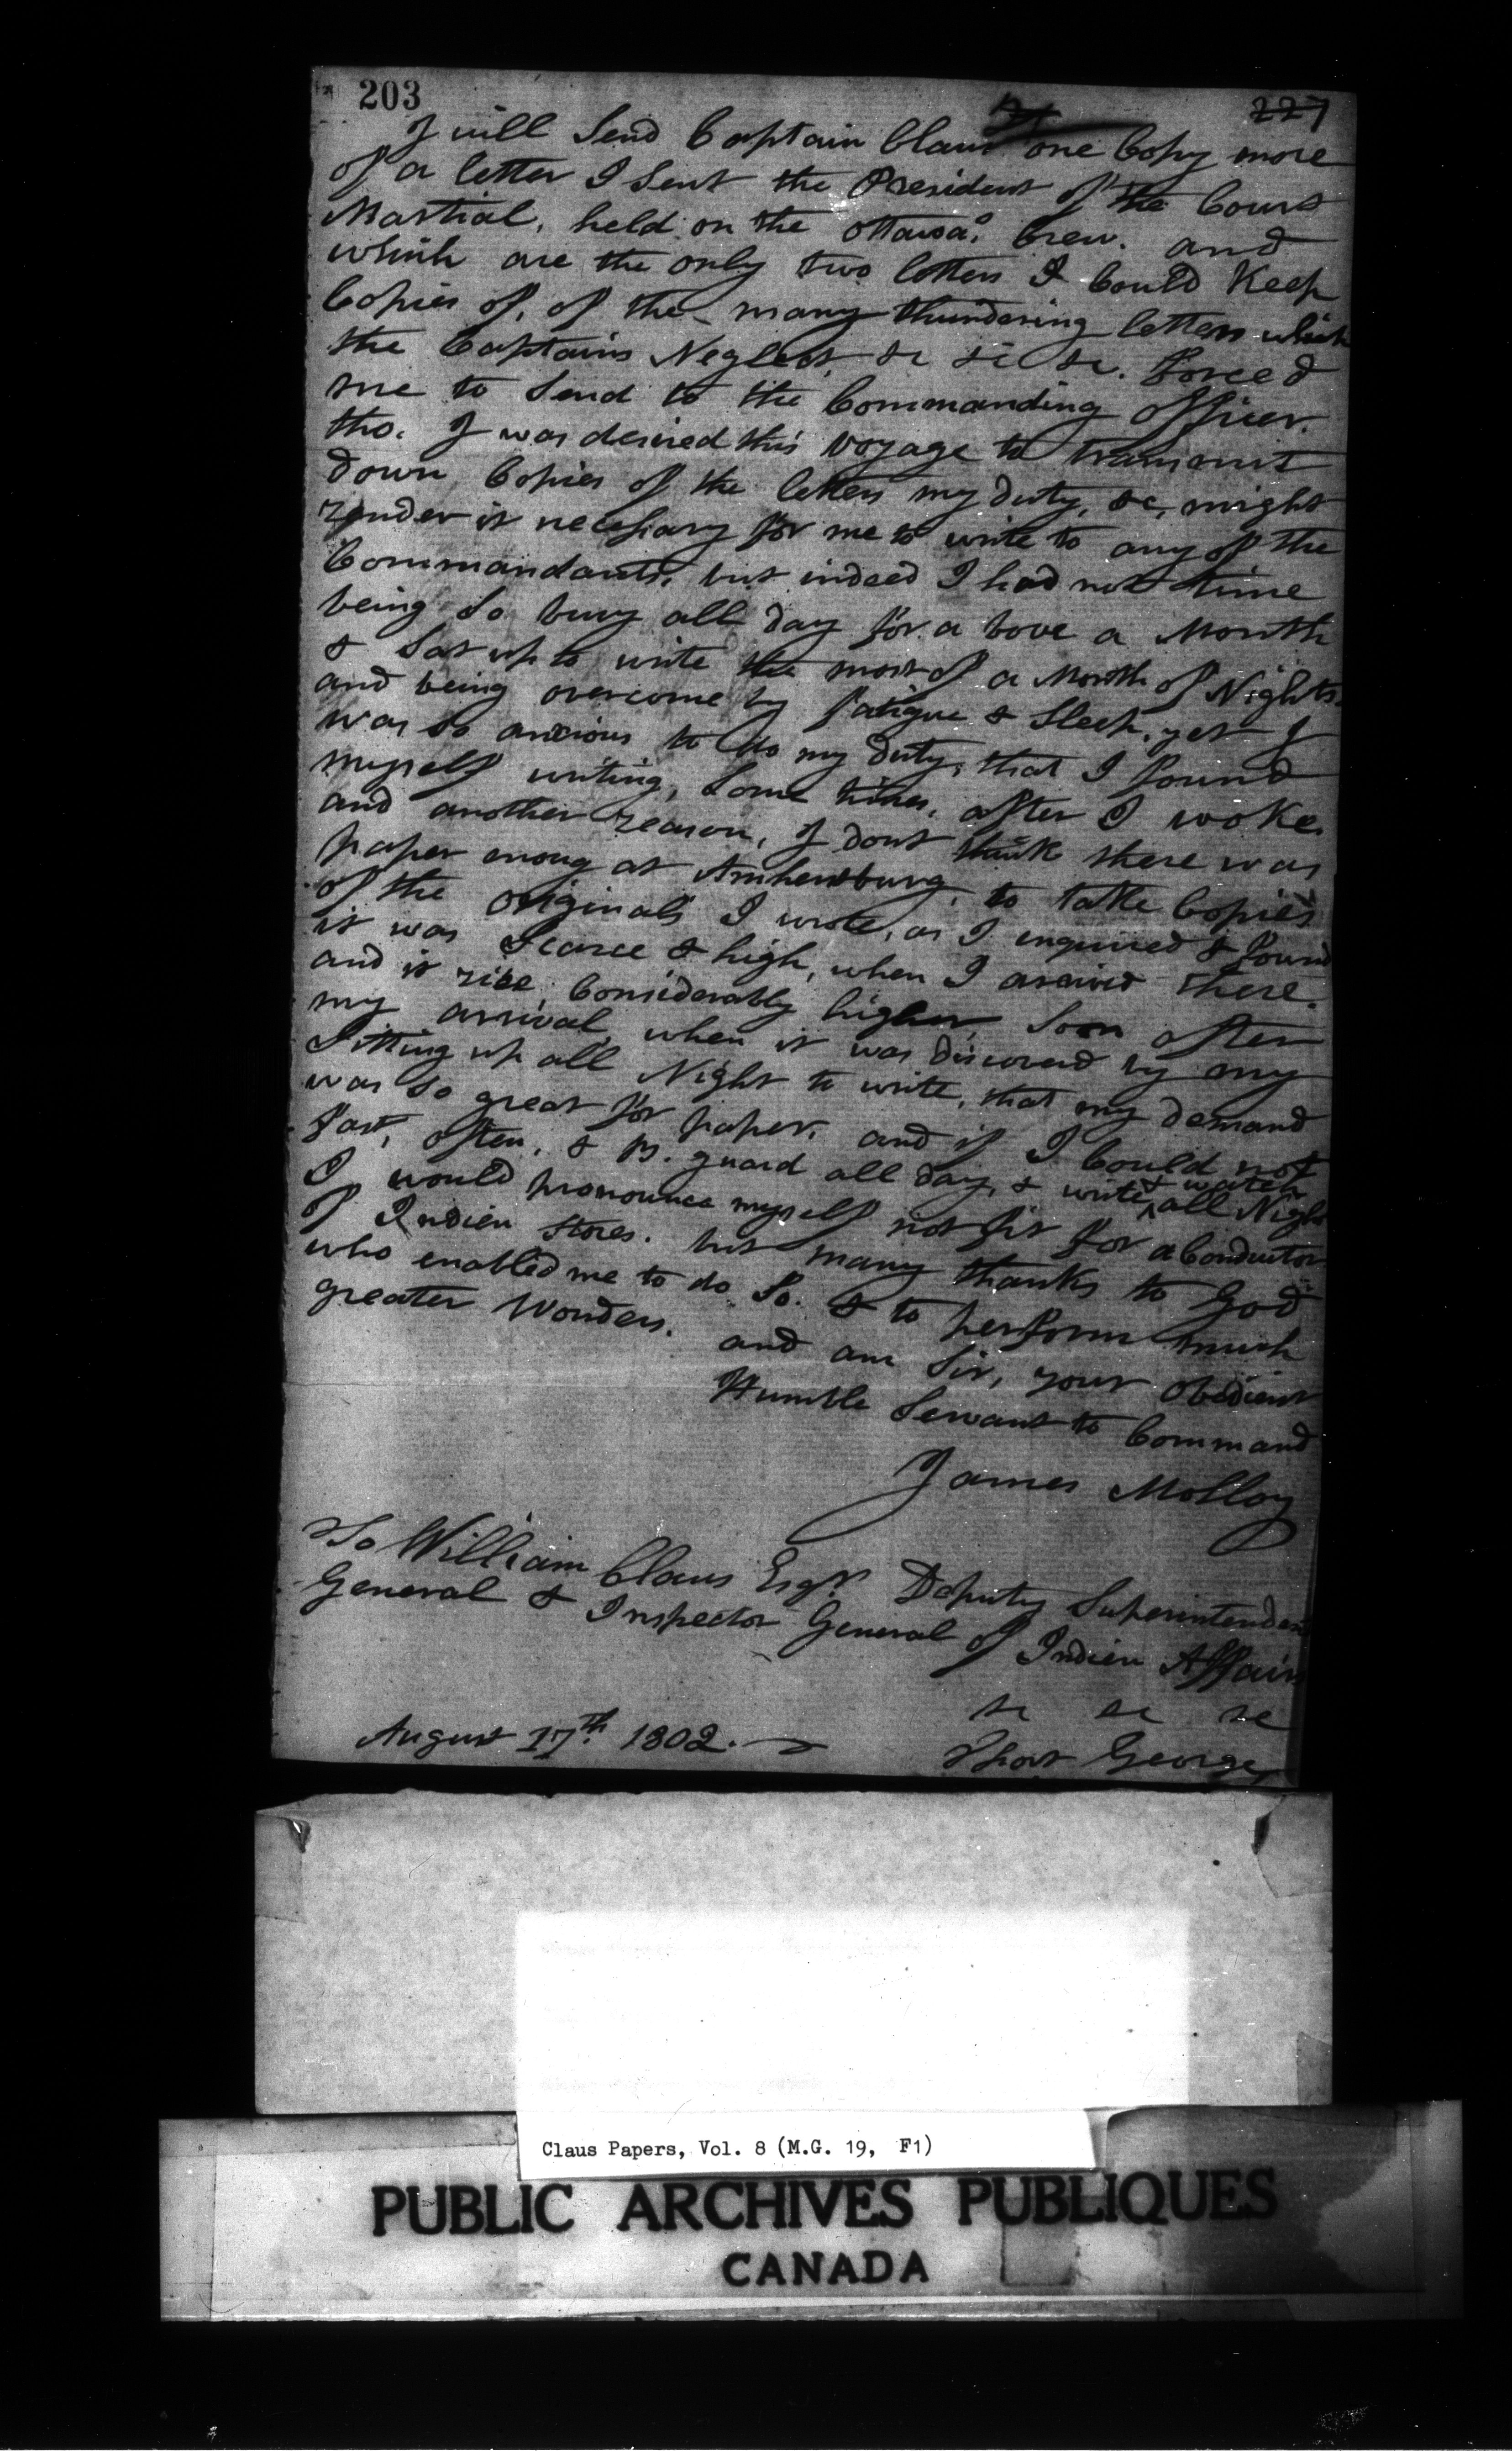 203
227
I will Send Captain Claus one Copy more
of a letter I Sent the President of the Court
Martial, held on the Ottawa's Crew. and
which are the only two letters I Could Keep
Copies of, of the many thundering letters which
the Captains Neglect, &c &c &c. forced
me to Send to the Commanding officer.
tho. I was desired this Voyage to transmit
down Copies of the letters my duty, &c, might
render it necessary for me to write to any of the
Commandants, but indeed I had not time
being So busy all day for a bove a Month
& Sat up to write the most of a Month of Nights.
and being overcome by fatigue & Sleep, yet I
was so anxious to do my duty, that I found
myself writing, Some times, after I woke.
and another reason, I dont think there was
paper enoug at Amherstburg, to take Copies
of the originals I wrote, as I enquired & found
it was Scarce & high, when I arrived there.
and it rise, Considerably higher, Soon after
my arrival, when it was discovered by my
Sitting up all Night to write, that my demand
was So great for paper. and if I Could not
fast, often, & B. guard all day, & write & watch all Night
I would pronounce myself not fit for a Conductor
of Indien Stores. but many thanks to God
who enabled me to do So. & to perform much
greater Wonders.
and am Sir, your obedient
Humble Servant to Command
James Molloy
To William Claus Esqr. Deputy Superintendent
General & Inspector General of Indien Affairs
&c &c &c
August 17th. 1802.
Fhort George,
Claus Papers, Vol. 8 (M.G. 19, F1)
PUBLIC ARCHIVES PUBLIQUES
CANADA